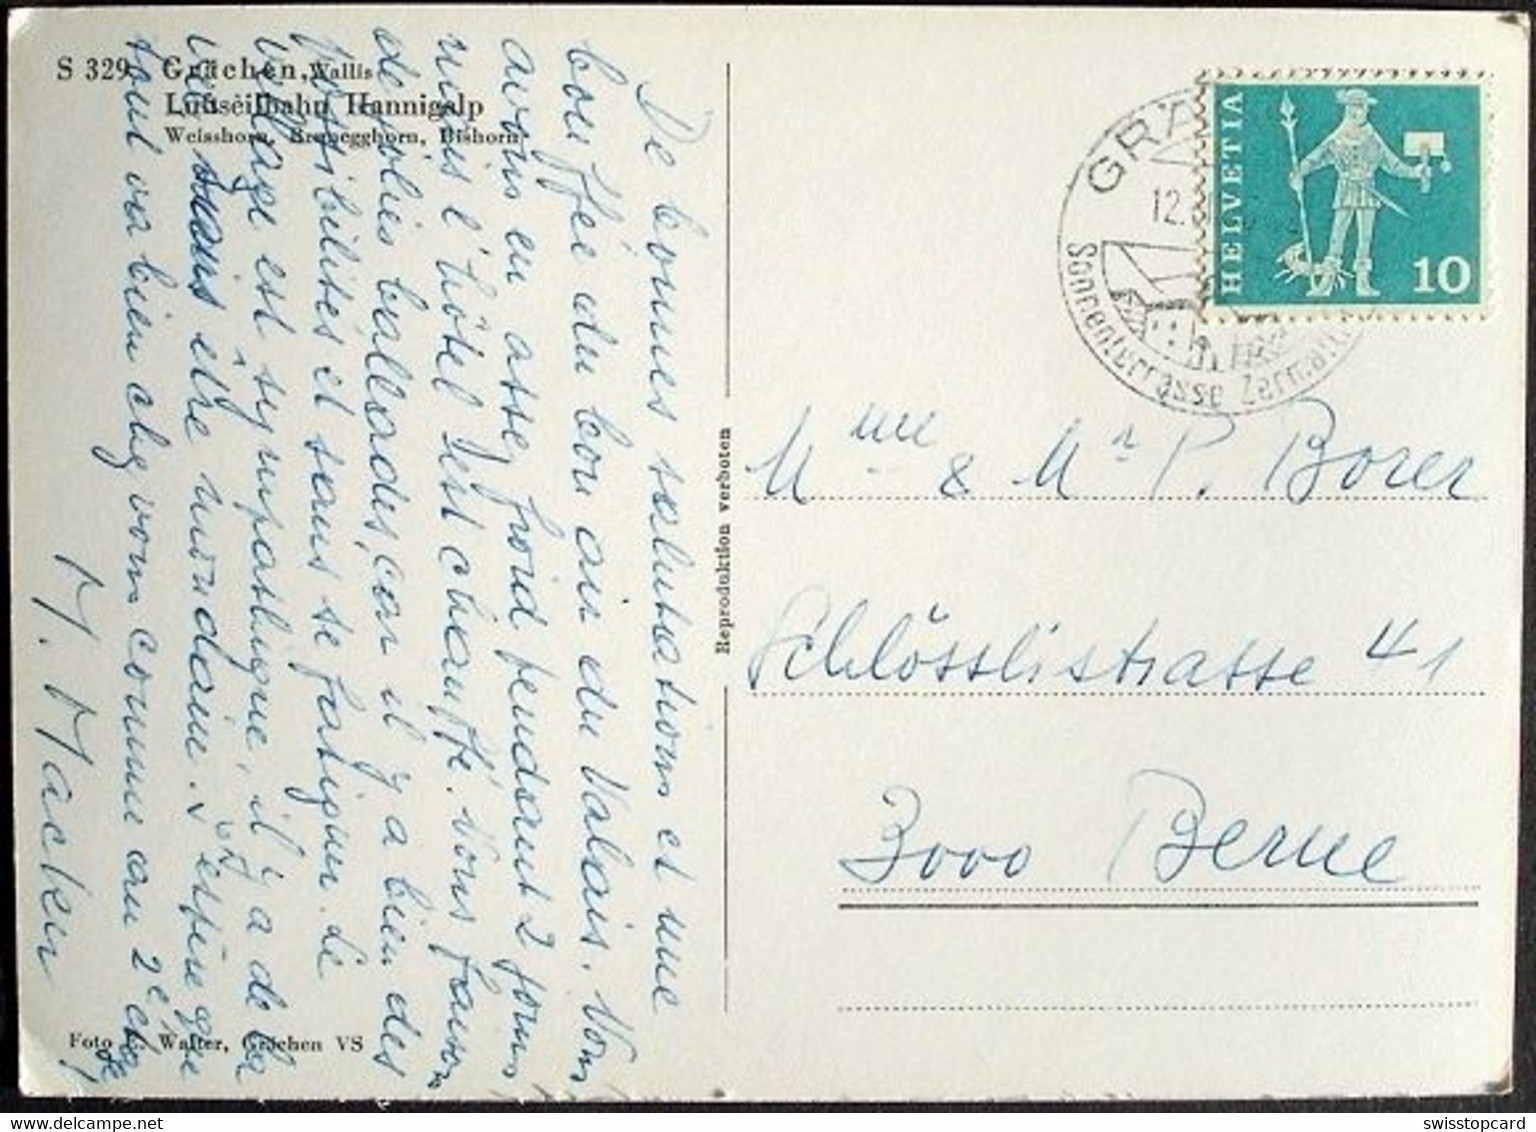 S 329 Grächen, Wallis
Luftseilbahn Hannigalp
Weisshorn, Brunegghorn, Bishorn
De bonnes salutations et une
bouffée du bon air du Valais. Nous
avons eu assez froid pendant 2 jours
mais l'hôtel est chauffé. Nous faisons
de jolies ballades, car il y a bien des
possibilités et sans se fatiguer. Le
village est sympathique, il y a de la
vie sans être mondain. J'espère que
tout va bien chez vous comme au 2e étage
M. Macker
Foto E. Walter, Grächen VS
Reproduktion verboten
GRÄ
12.
Sonnenterrasse Zermatt
HELVETIA
10
Mme & Mr P. Borer
Schlösslistrasse 41
3000 Berne
swisstopcard